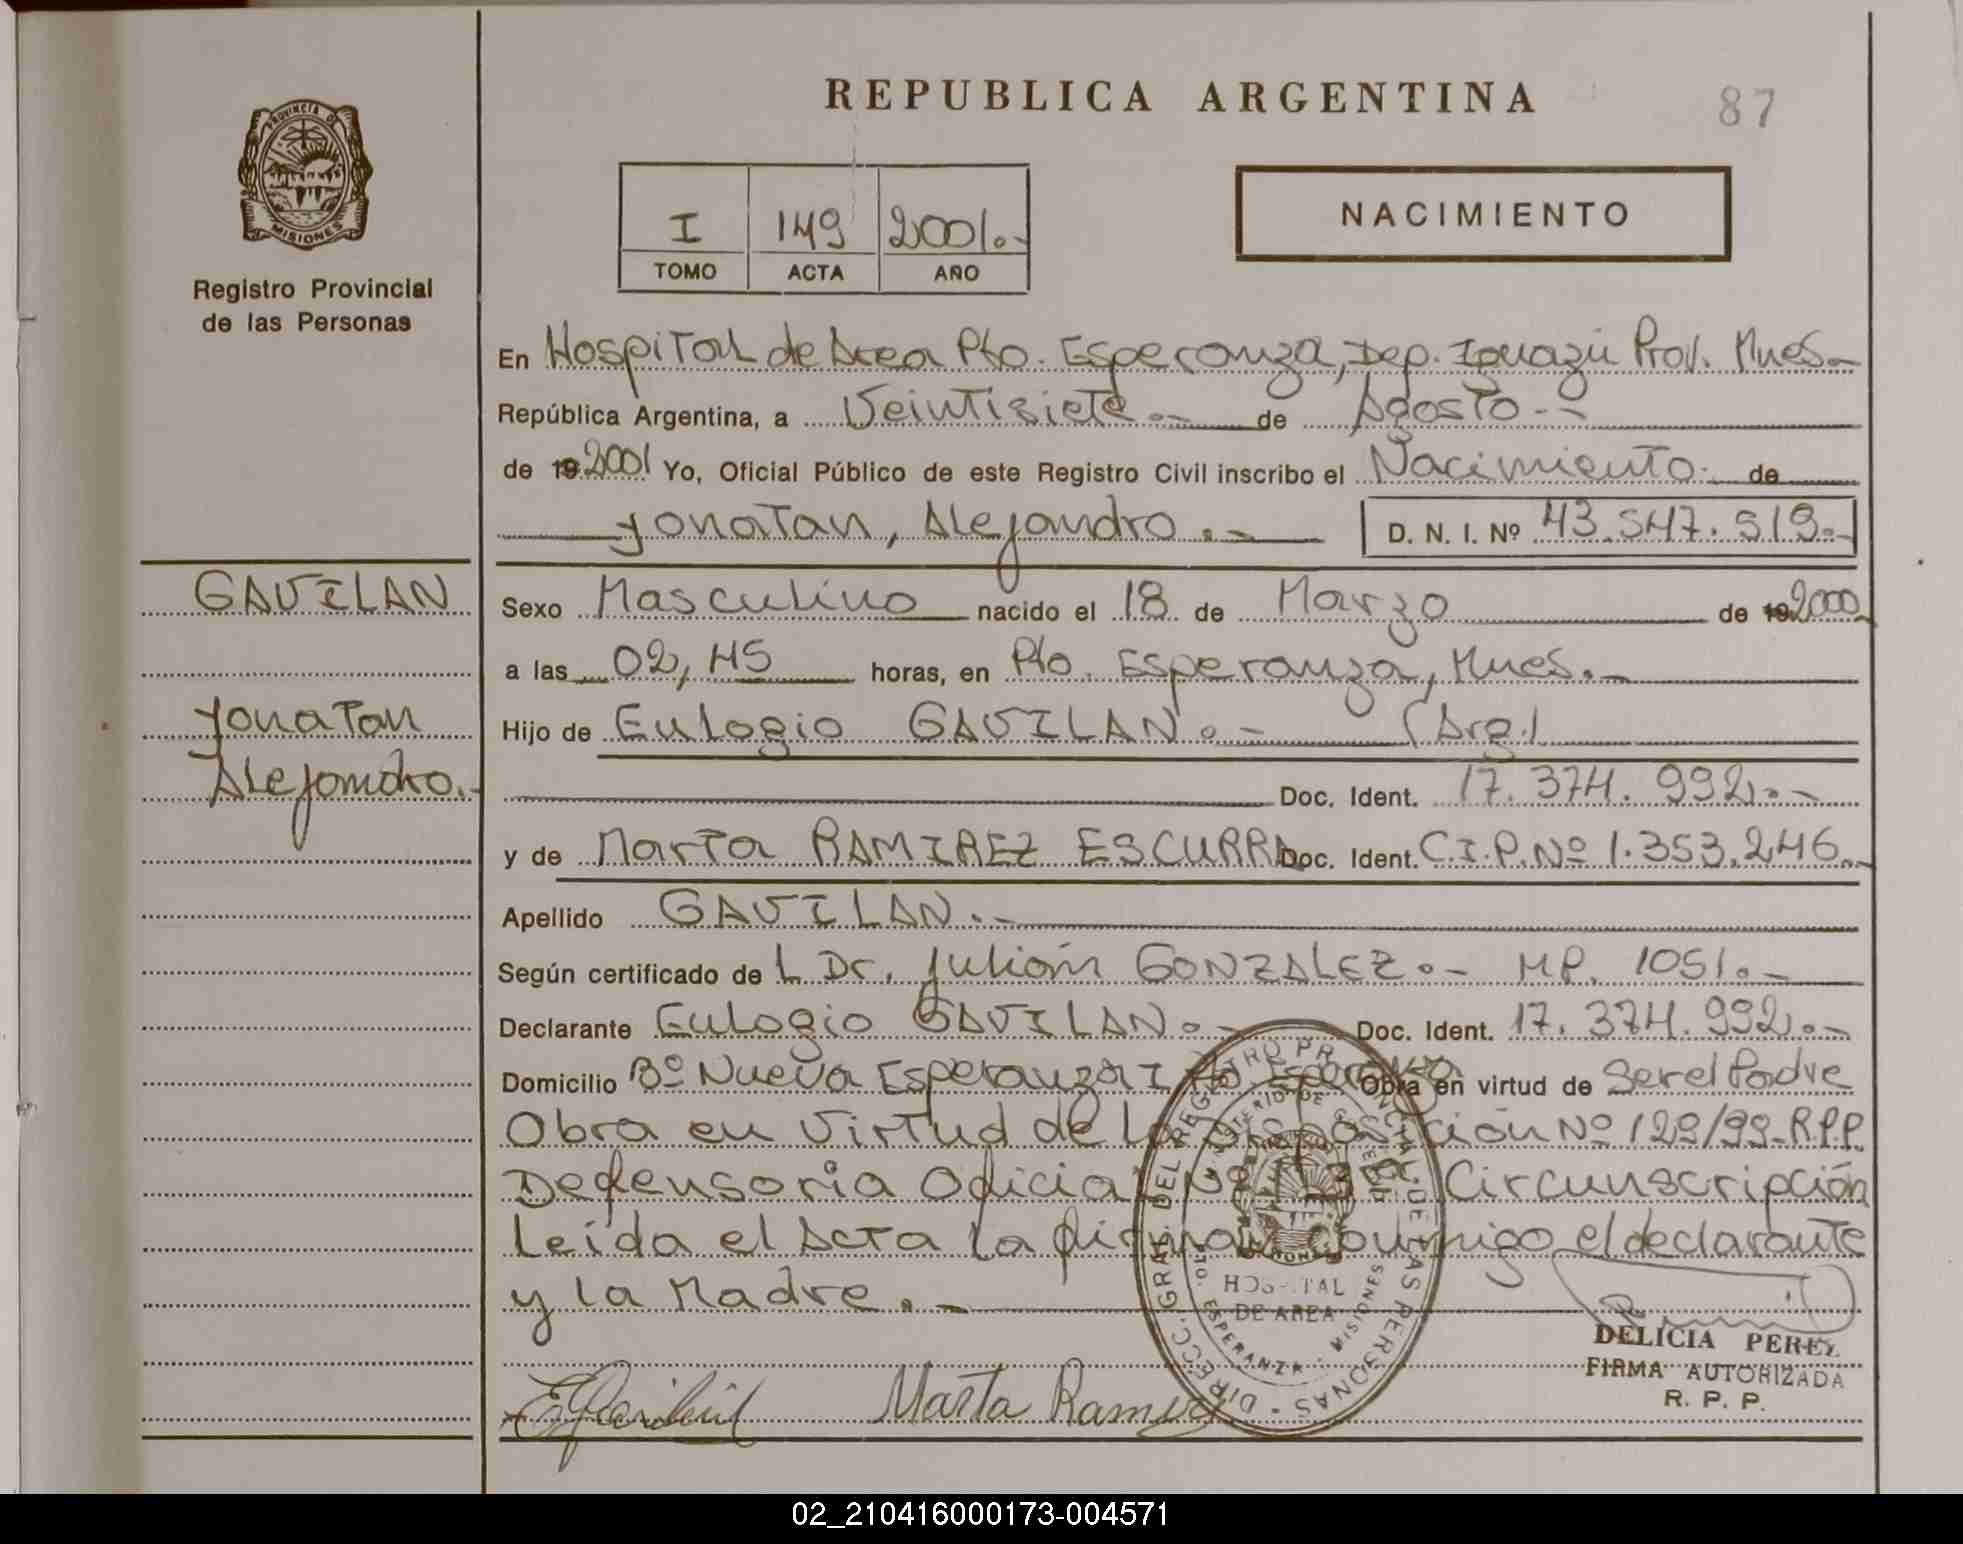 REPUBLICA ARGENTINA
87
PROVINCIA DE
MISIONES
Registro Provincial
de las Personas
I 149 2001.-
TOMO ACTA AÑO
NACIMIENTO
En Hospital de Area Pto. Esperanza, Dep. Iguazú Prov. Mnes.-
República Argentina, a Veintisiete.- de Agosto.-
de 19 2001 Yo, Oficial Público de este Registro Civil inscribo el Nacimiento. de
Yonatan, Alejandro.- D. N. I. Nº 43.547.519.-
GAVILAN
Yonatan
Alejandro.-
Sexo Masculino nacido el 18 de Marzo de 19 2000
a las 02,45 horas, en Pto. Esperanza, Mnes.-
Hijo de Eulogio GAVILAN.- (Arg)
Doc. Ident. 17.374.992.-
y de Marta RAMIREZ ESCURRA Doc. Ident. C.I.P.Nº 1.353.246.-
Apellido GAVILAN.-
Según certificado de L Dr. Julián GONZALEZ.- M.P. 1051.-
Declarante Eulogio GAVILAN.- Doc. Ident. 17.374.992.-
Domicilio Bº Nueva Esperanza I Pto Esperanza Obra en virtud de Ser el Padre
Obra en Virtud de la Disposición Nº 129/99-R.P.P.
Defensoria Oficial Nº Circunscripción
Leída el Acta la firman conmigo el declarante
y la Madre.-
DIRECC. GRAL. DEL REGISTRO PROVINCIAL DE LAS PERSONAS
MINISTERIO DE GOBIERNO
HOSPITAL
DE AREA
PTO. ESPERANZA - MISIONES
DELICIA PEREZ
FIRMA AUTORIZADA
R. P. P.
Marta Ramirez
02_210416000173-004571